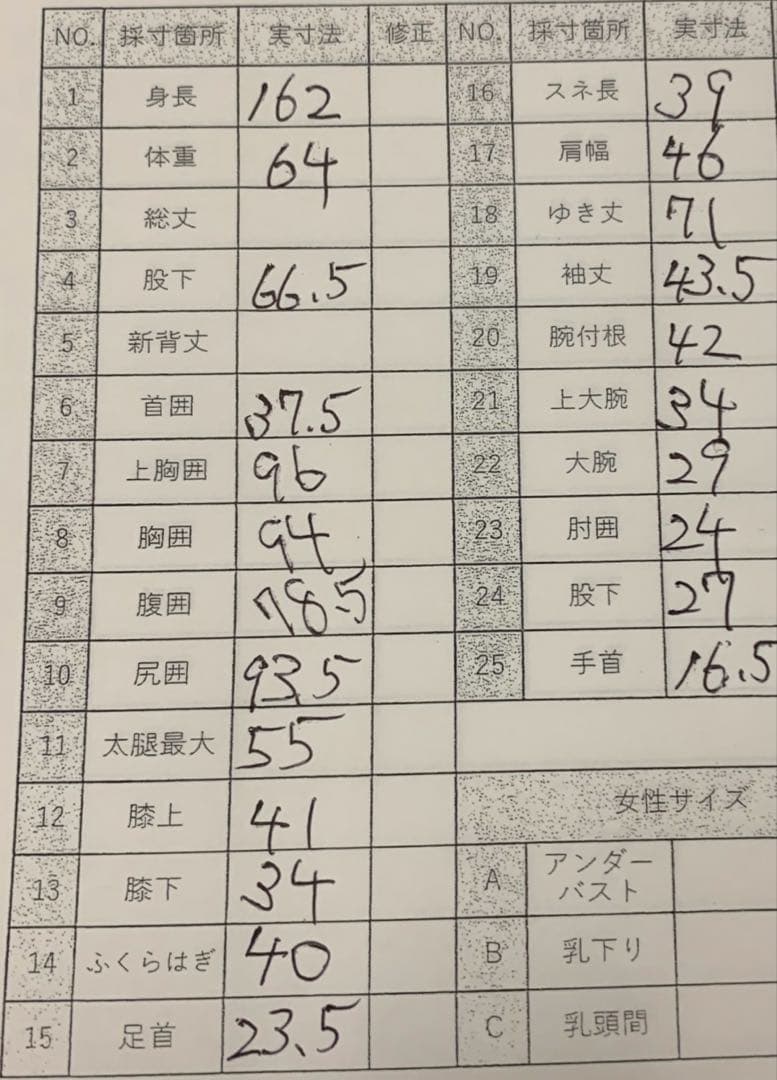 NO. 採寸箇所 実寸法 修正 NO. 採寸箇所 実寸法
1 身長 162 16 スネ長 39
2 体重 64 17 肩幅 46
3 総丈 18 ゆき丈 71
4 股下 66.5 19 袖丈 43.5
5 新背丈 20 腕付根 42
6 首囲 37.5 21 上大腕 34
7 上胸囲 96 22 大腕 29
8 胸囲 94 23 肘囲 24
9 腹囲 78.5 24 股下 27
10 尻囲 93.5 25 手首 16.5
11 太腿最大 55
12 膝上 41 女性サイズ
13 膝下 34 A アンダー
バスト
14 ふくらはぎ 40 B 乳下り
15 足首 23.5 C 乳頭間